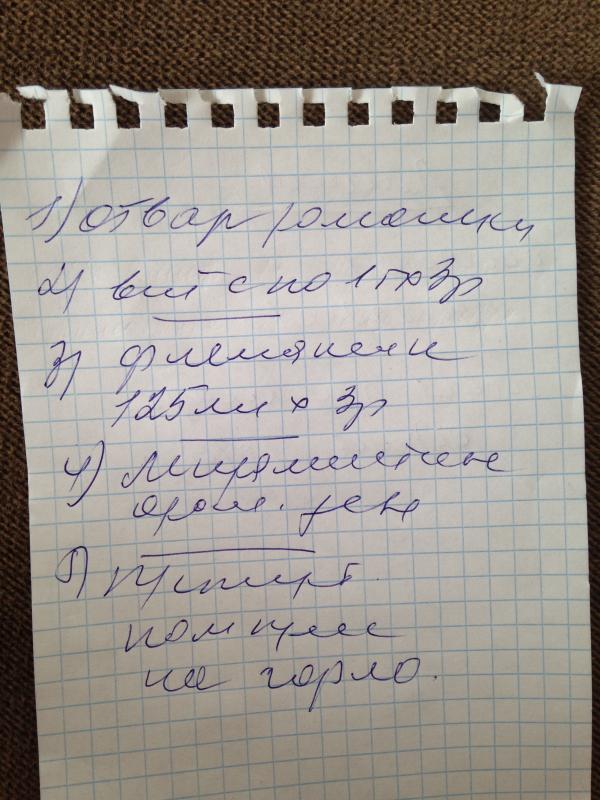 1) отвар ромашки
2) вит с по 1т х 3р
3) флемоклин
125 мг х 3р
4) Мирамистин
орош.
5) 
компресс
на горло.